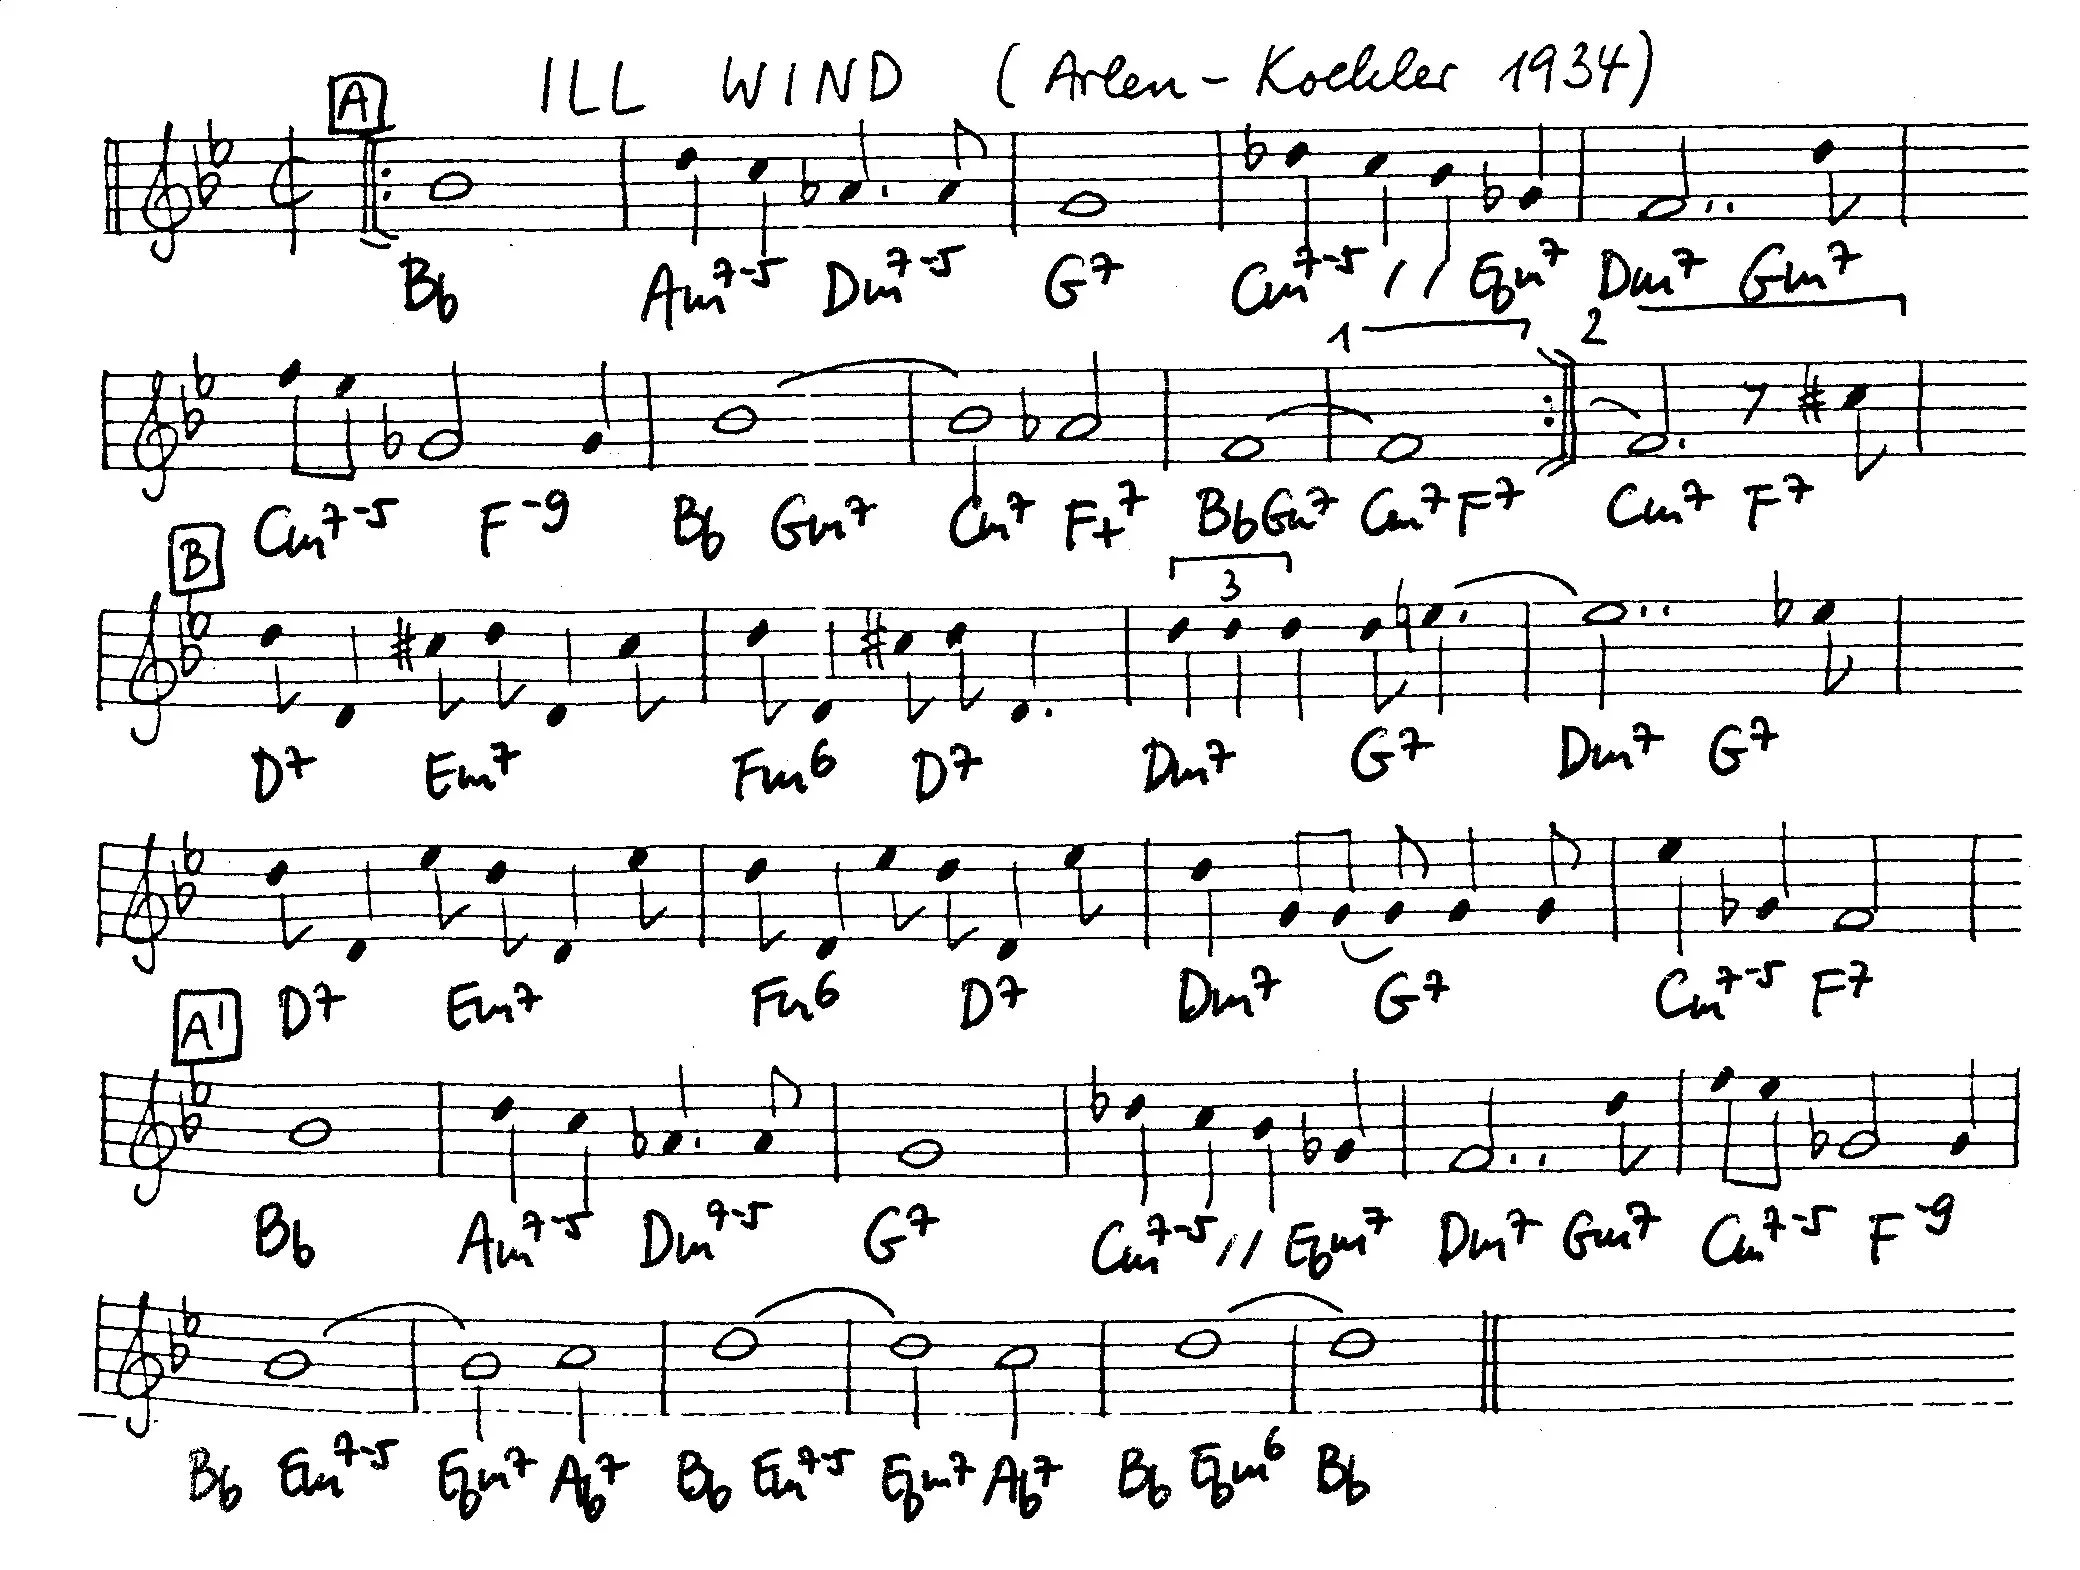 ILL WIND (Arlen-Koehler 1934)
A
Bb Am7-5 Dm7-5 G7 Cm7-5 // Ebm7 Dm7 Gm7
1 2
Cm7-5 F-9 Bb Gm7 Cm7 F+7 Bb Gm7 Cm7 F7 Cm7 F7
B
3
D7 Em7 Fm6 D7 Dm7 G7 Dm7 G7
D7 Em7 Fm6 D7 Dm7 G7 Cm7-5 F7
A'
Bb Am7-5 Dm7-5 G7 Cm7-5 // Ebm7 Dm7 Gm7 Cm7-5 F-9
Bb Em7-5 Ebm7 Ab7 Bb Em7-5 Ebm7 Ab7 Bb Ebm6 Bb